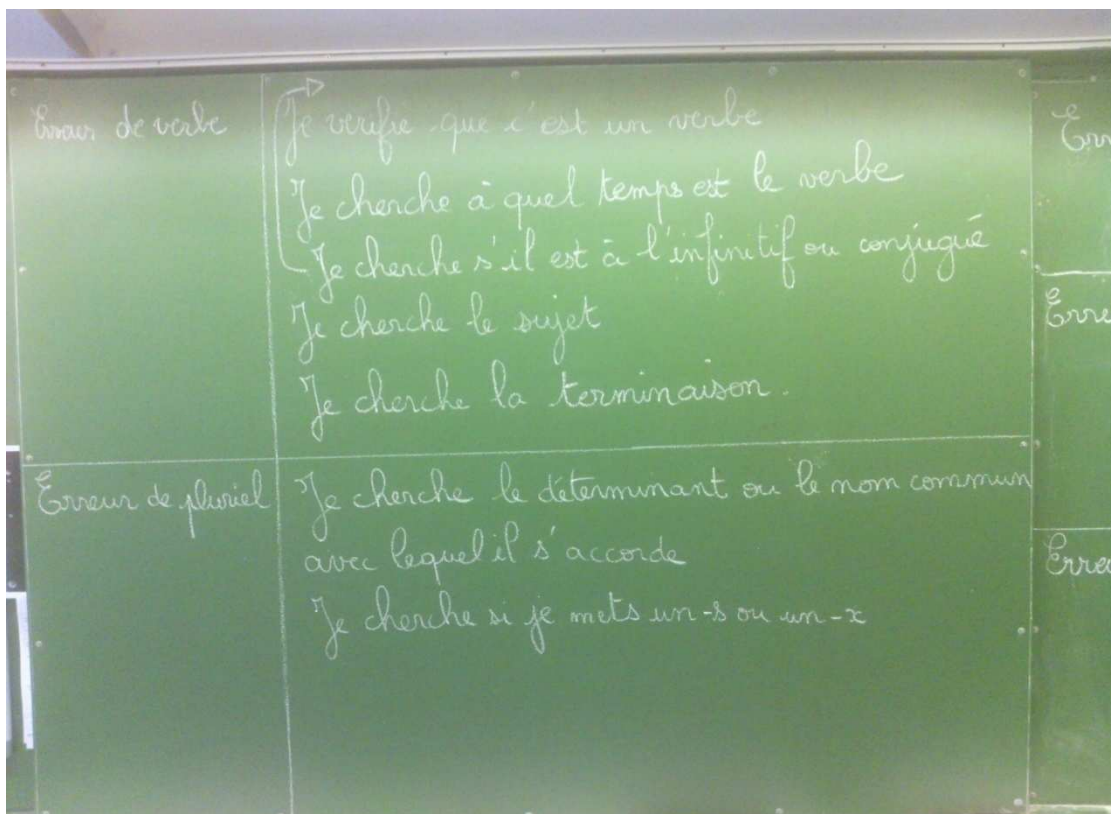 Erreur de verbe
Je vérifie que c'est un verbe
Je cherche à quel temps est le verbe
Je cherche s'il est à l'infinitif ou conjugué
Je cherche le sujet
Je cherche la terminaison.
Erreur de pluriel
Je cherche le déterminant ou le nom commun
avec lequel il s'accorde
Je cherche si je mets un -s ou un -x
Err
Erre
Erreu